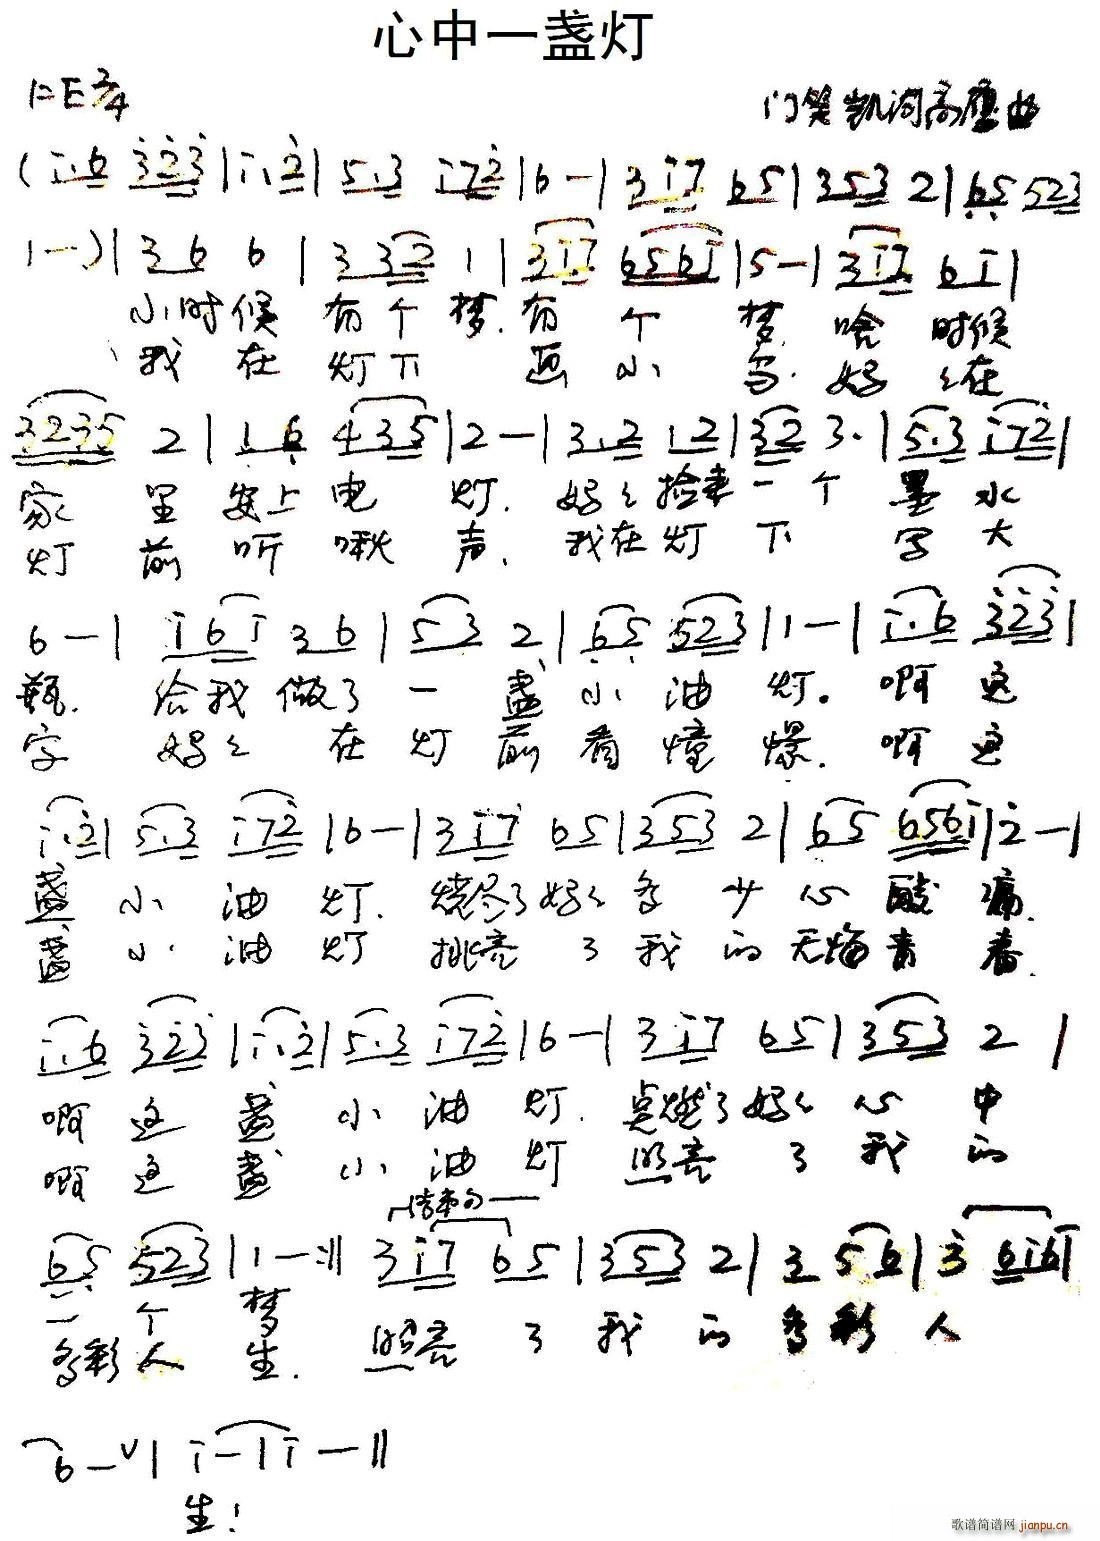 心中一盏灯
1=E 2/4
门笑凯词高 曲
(i.6 323|i.2|5.3 i72|6—|3i7 65|353 2|65 523
1—)|36 6|3 32 1|3i7 656i|5—|3i7 6i|
小时候有个梦.有个梦.啥时候
我在灯下画小鸟.妈〻在
3235 2|1 6 435|2—|3.2 12|32 3.|5.3 i72|
家里安上电灯.妈〻捡来一个墨水
灯前听 声.我在灯下写大
6—|i6i 36|53 2|65 523|1—|i.6 323|
瓶.给我做了一盏小油灯。啊这
字妈〻在灯前看憧憬.啊这
i.2|5.3 i72|6—|3i7 65|353 2|65 656i|2—|
盏小油灯.烧尽了妈〻多少心酸痛.
盏小油灯挑亮了我的无悔青春.
i.6 323|i.2|5.3 i72|6—|3i7 65|353 2|
啊这盏小油灯.点燃了妈〻心中
啊这盏小油灯照亮了我的
结束句
65 523|1—:‖3i7 65|353 2|3 56|3 6i6i|
一个梦
多彩人生.照亮了我的多彩人
6—∨|i—|i—‖
生!
歌谱简谱网 jianpu.cn